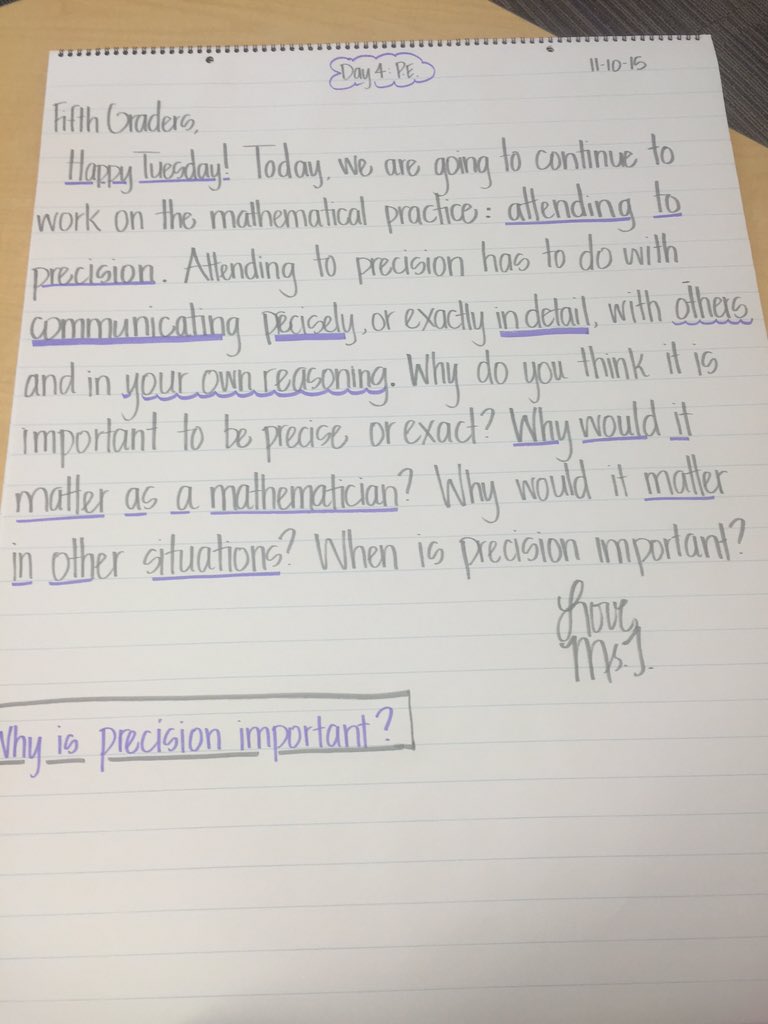 Day 4: P.E.
11-10-15
Fifth Graders,
Happy Tuesday! Today, we are going to continue to
work on the mathematical practice: attending to
precision. Attending to precision has to do with
communicating pecisely, or exactly in detail, with others
and in your own reasoning. Why do you think it is
important to be precise or exact? Why would it
matter as a mathematician? Why would it matter
in other situations? When is precision important?
Love,
Ms. J.
Why is precision important?